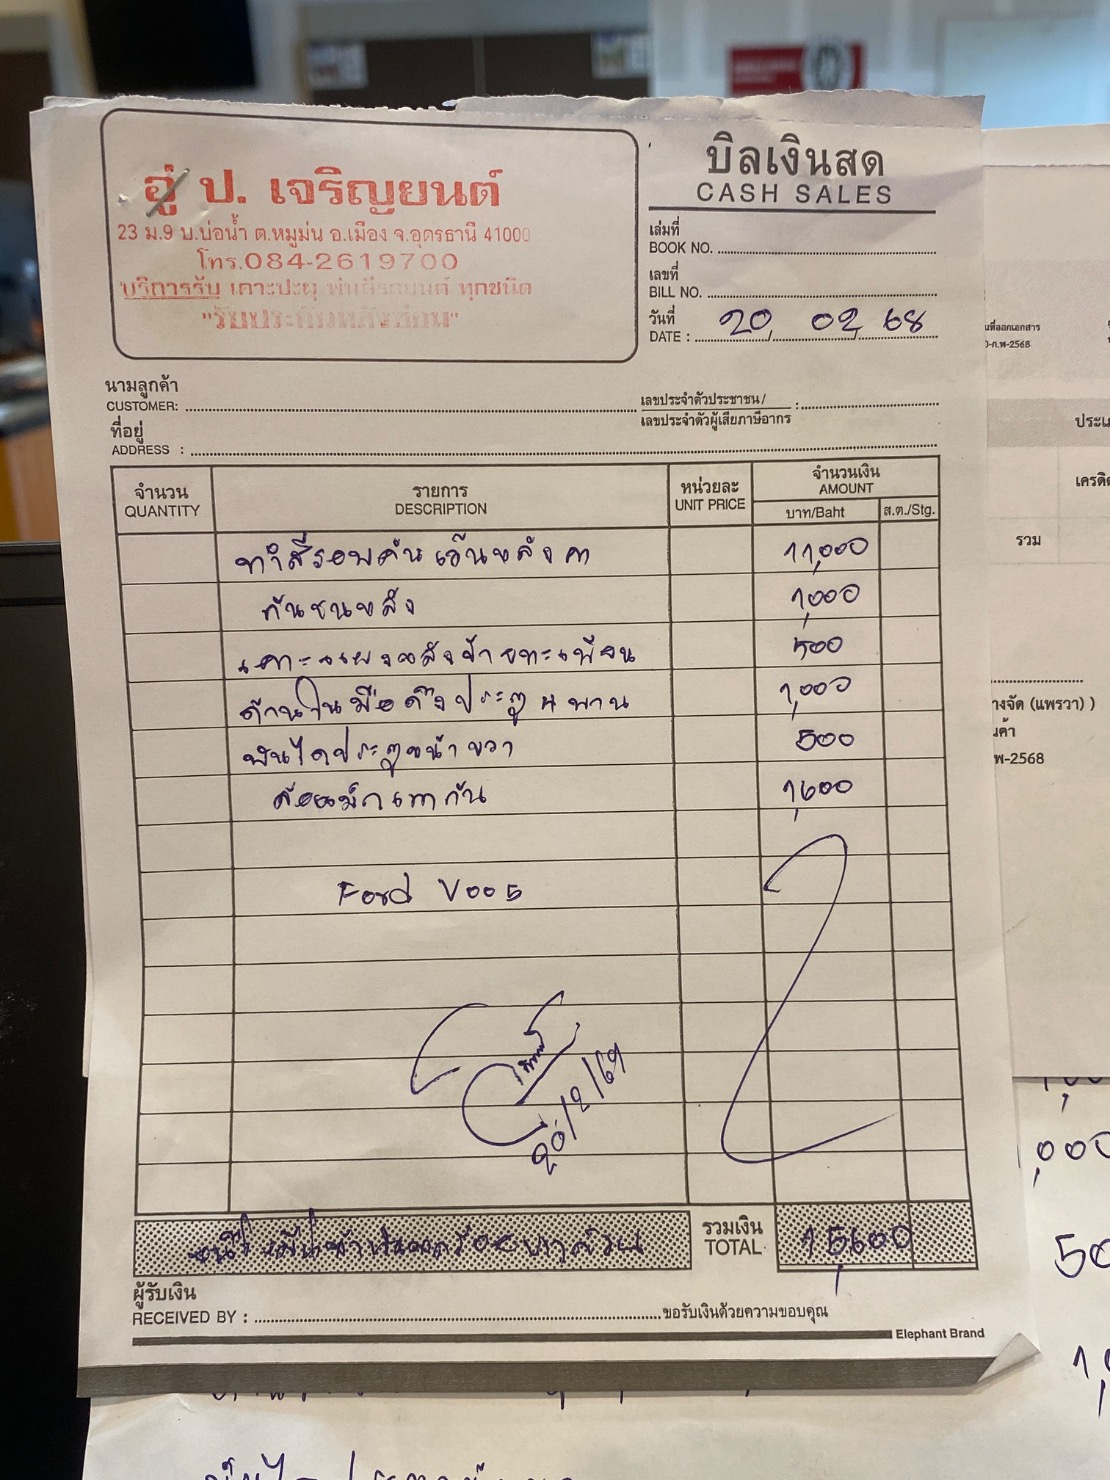 อู่ ป. เจริญยนต์
23 ม.9 บ.บ่อน้ำ ต.หมูม่น อ.เมือง จ.อุดรธานี 41000
โทร.084-2619700
บริการรับ เคาะปะผุ พ่นสีรถยนต์ ทุกชนิด
บิลเงินสด
CASH SALES
เล่มที่
BOOK NO.
เลขที่
BILL NO.
วันที่
DATE : 20 / 02 / 68
นามลูกค้า
CUSTOMER:
เลขประจำตัวประชาชน /
เลขประจำตัวผู้เสียภาษีอากร :
ที่อยู่
ADDRESS :
จำนวน
QUANTITY
รายการ
DESCRIPTION
หน่วยละ
UNIT PRICE
จำนวนเงิน
AMOUNT
บาท/Baht ส.ต./Stg.
ทำสีรอบคันเว้นหลังคา 11,000
กันชนหลัง 1,000
500
ด้านในมือดึงประตู 1,000
บันไดประตูหน้าขวา 500
1,600
Ford V005
20/2/69
รวมเงิน
TOTAL 15,600
ผู้รับเงิน
RECEIVED BY : ขอรับเงินด้วยความขอบคุณ
Elephant Brand
นที่ออกเอกสาร
0-ก.พ-2568
ประเภ
เครดิต
รวม
างจัด (แพรวา) )
นค้า
พ-2568
,000
50